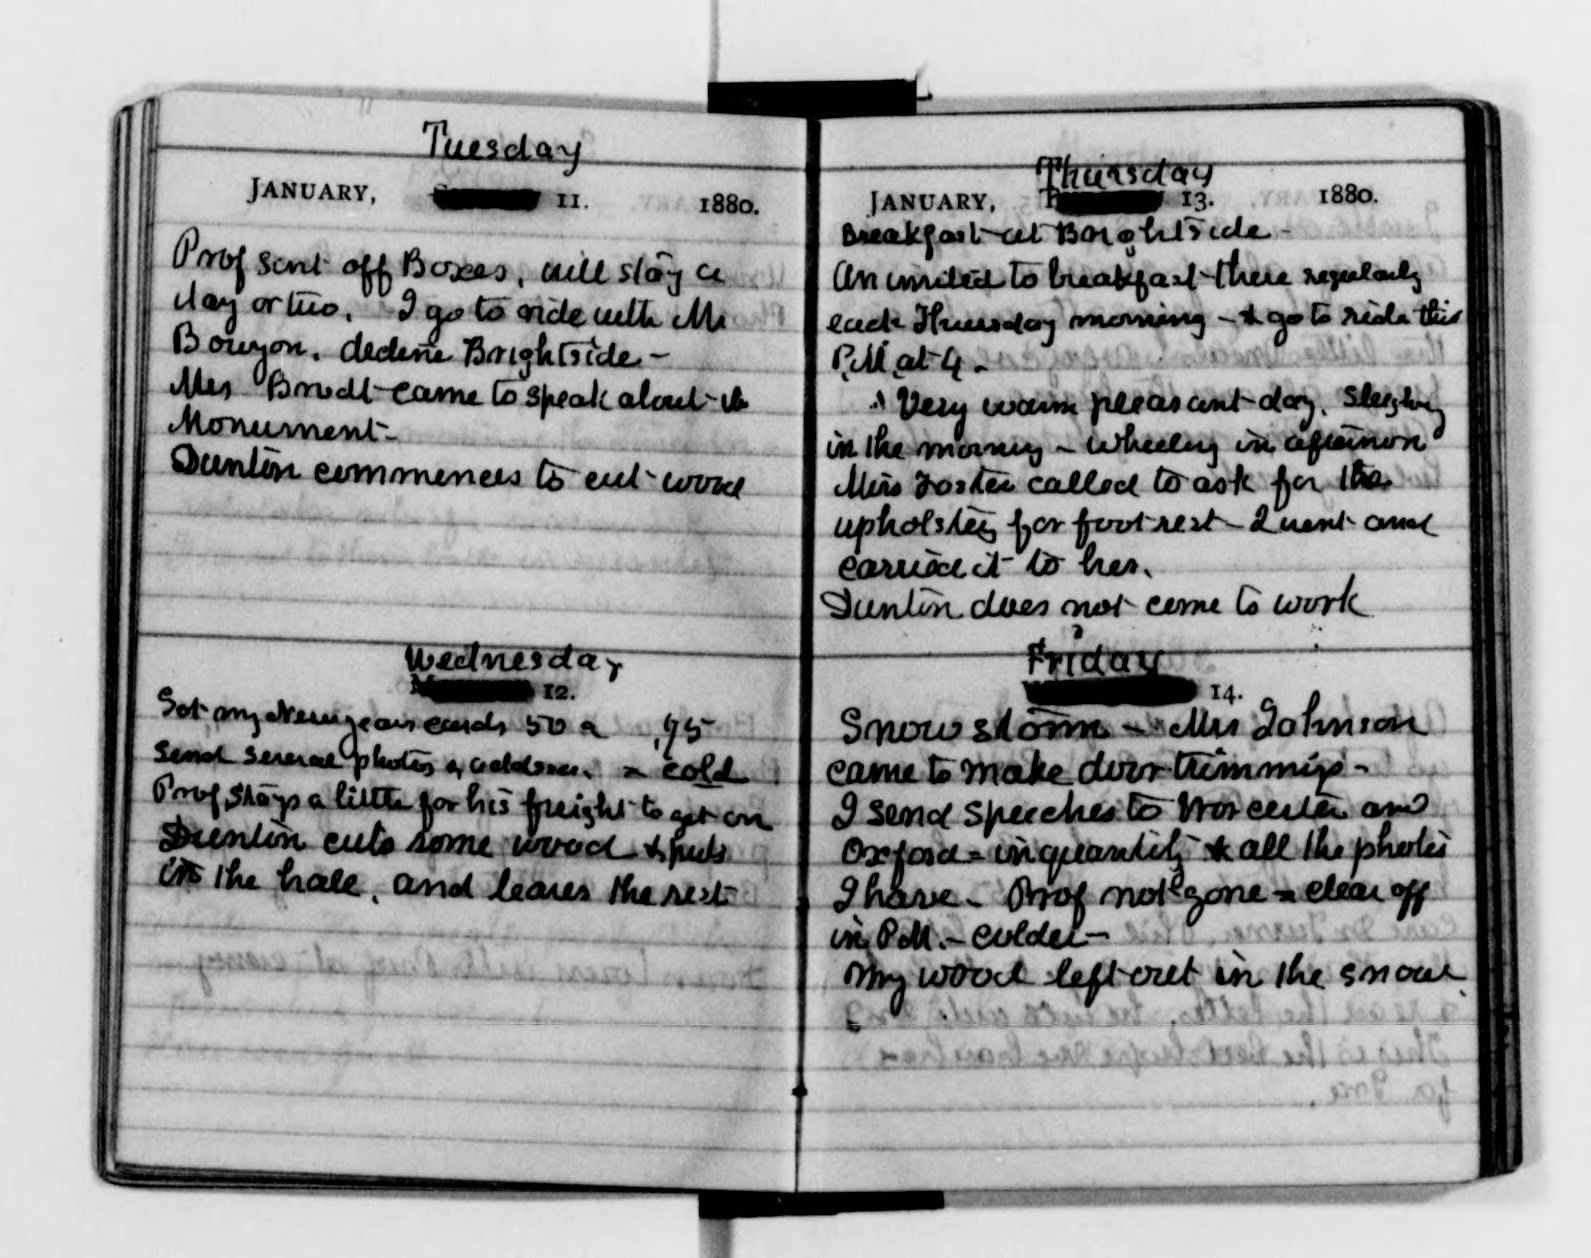 Tuesday
JANUARY, 11. 1880.
Prof sent off Boxes, will stay a
day or two. I go to ride with Mr
decline Brightside -
Mrs came to speak about the
Monument -
Duntin commences to cut wood
Wednesday
12.
Got my New years cards 50 a .95
send several photos & address. = cold
Prof, stays a little for his freight to get on
Duntin cuts some wood & puts
in the hall, and leaves the rest
Thursday
JANUARY, 13. 1880.
Breakfast at Brightside -
Am invited to breakfast there regularly
each Thursday morning - & go to ride this
P.M. at 4 -
Very warm pleasant day. Sleighing
in the morning - Wheeling in afternoon
Miss Foster called to ask for the
upholstery for foot rest - I went and
carried it to her.
Duntin does not come to work
Friday
14.
Snow storm - Mrs Johnson
came to make door trimmings -
I send speeches to Worcester and
Oxford = in quantity & all the photos
I have - Prof not gone = clear off
in P.M. - colder -
My wood left out in the snow